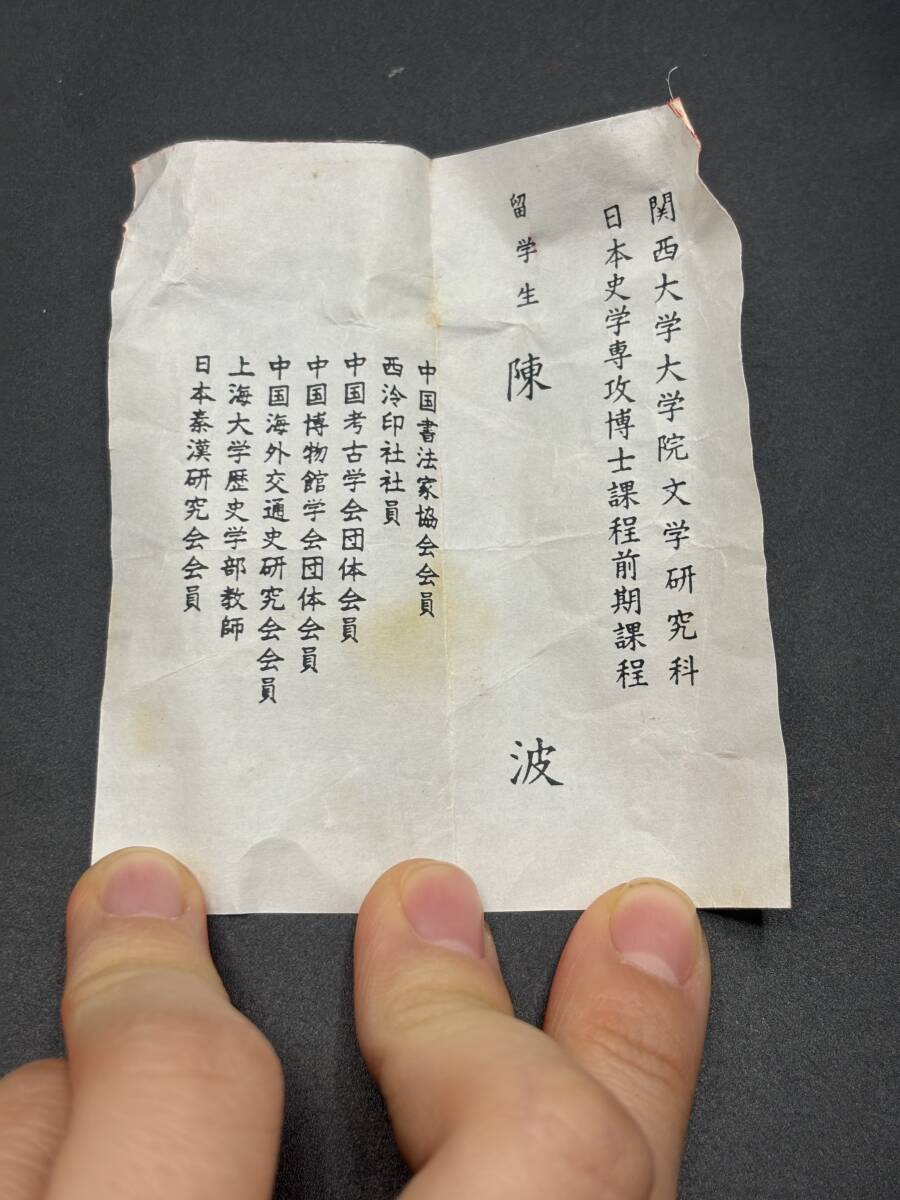 関西大学大学院文学研究科
日本史学専攻博士課程前期課程
留学生 陳 波
中国書法家協会会員
西泠印社社員
中国考古学会団体会員
中国博物館学会団体会員
中国海外交通史研究会会員
上海大学歴史学部教師
日本秦漢研究会会員